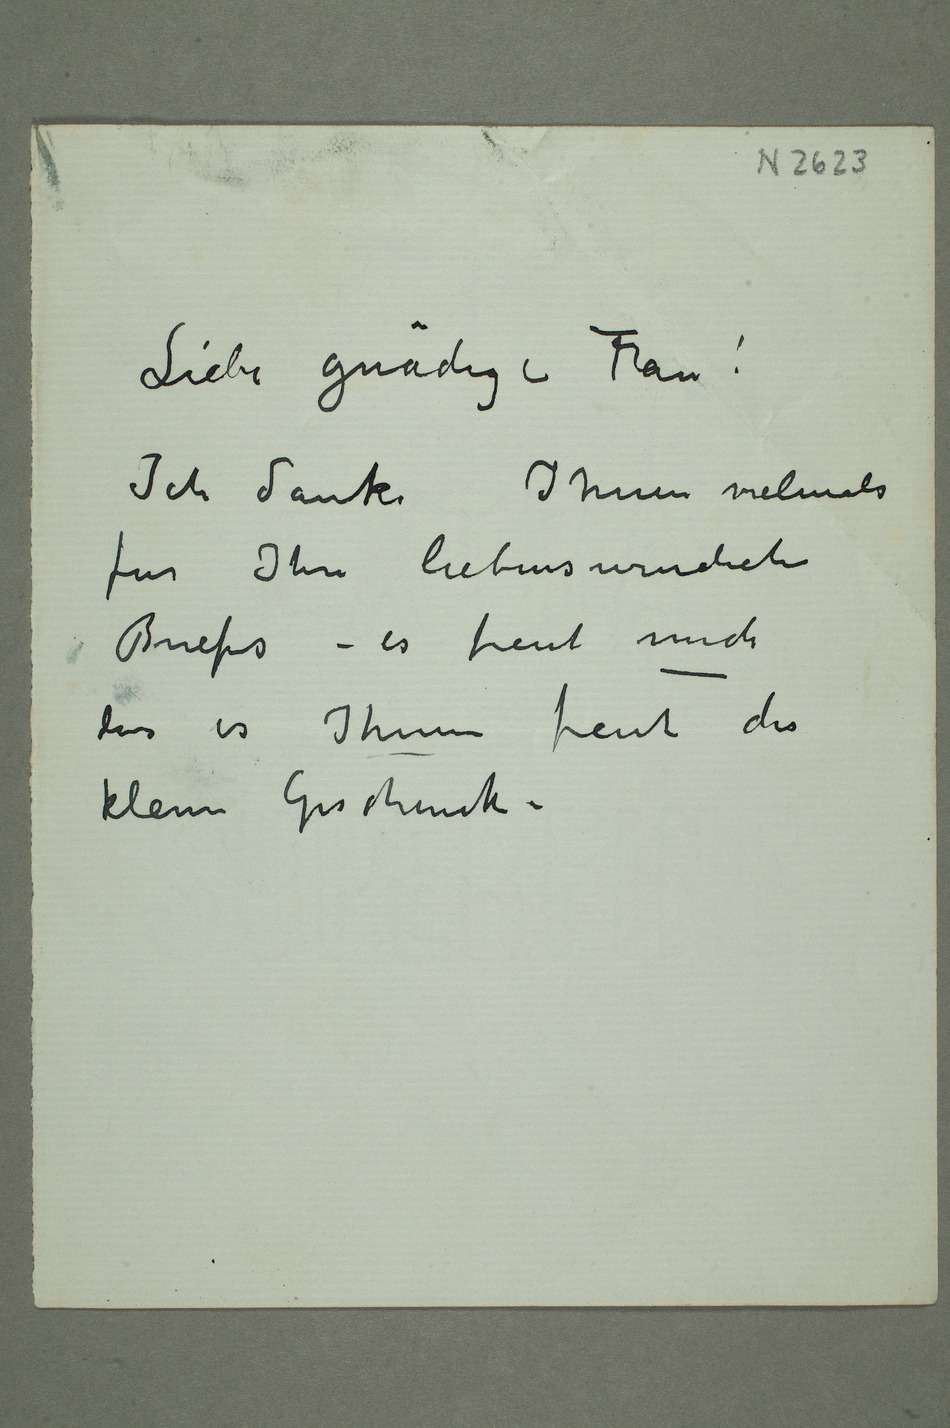 N 2623
Liebe gnädige Frau!
Ich danke Ihnen vielmals
für Ihre liebenswürdiche
Briefes – es freut mich
das es Ihnen freut das
kleine Geschenk –